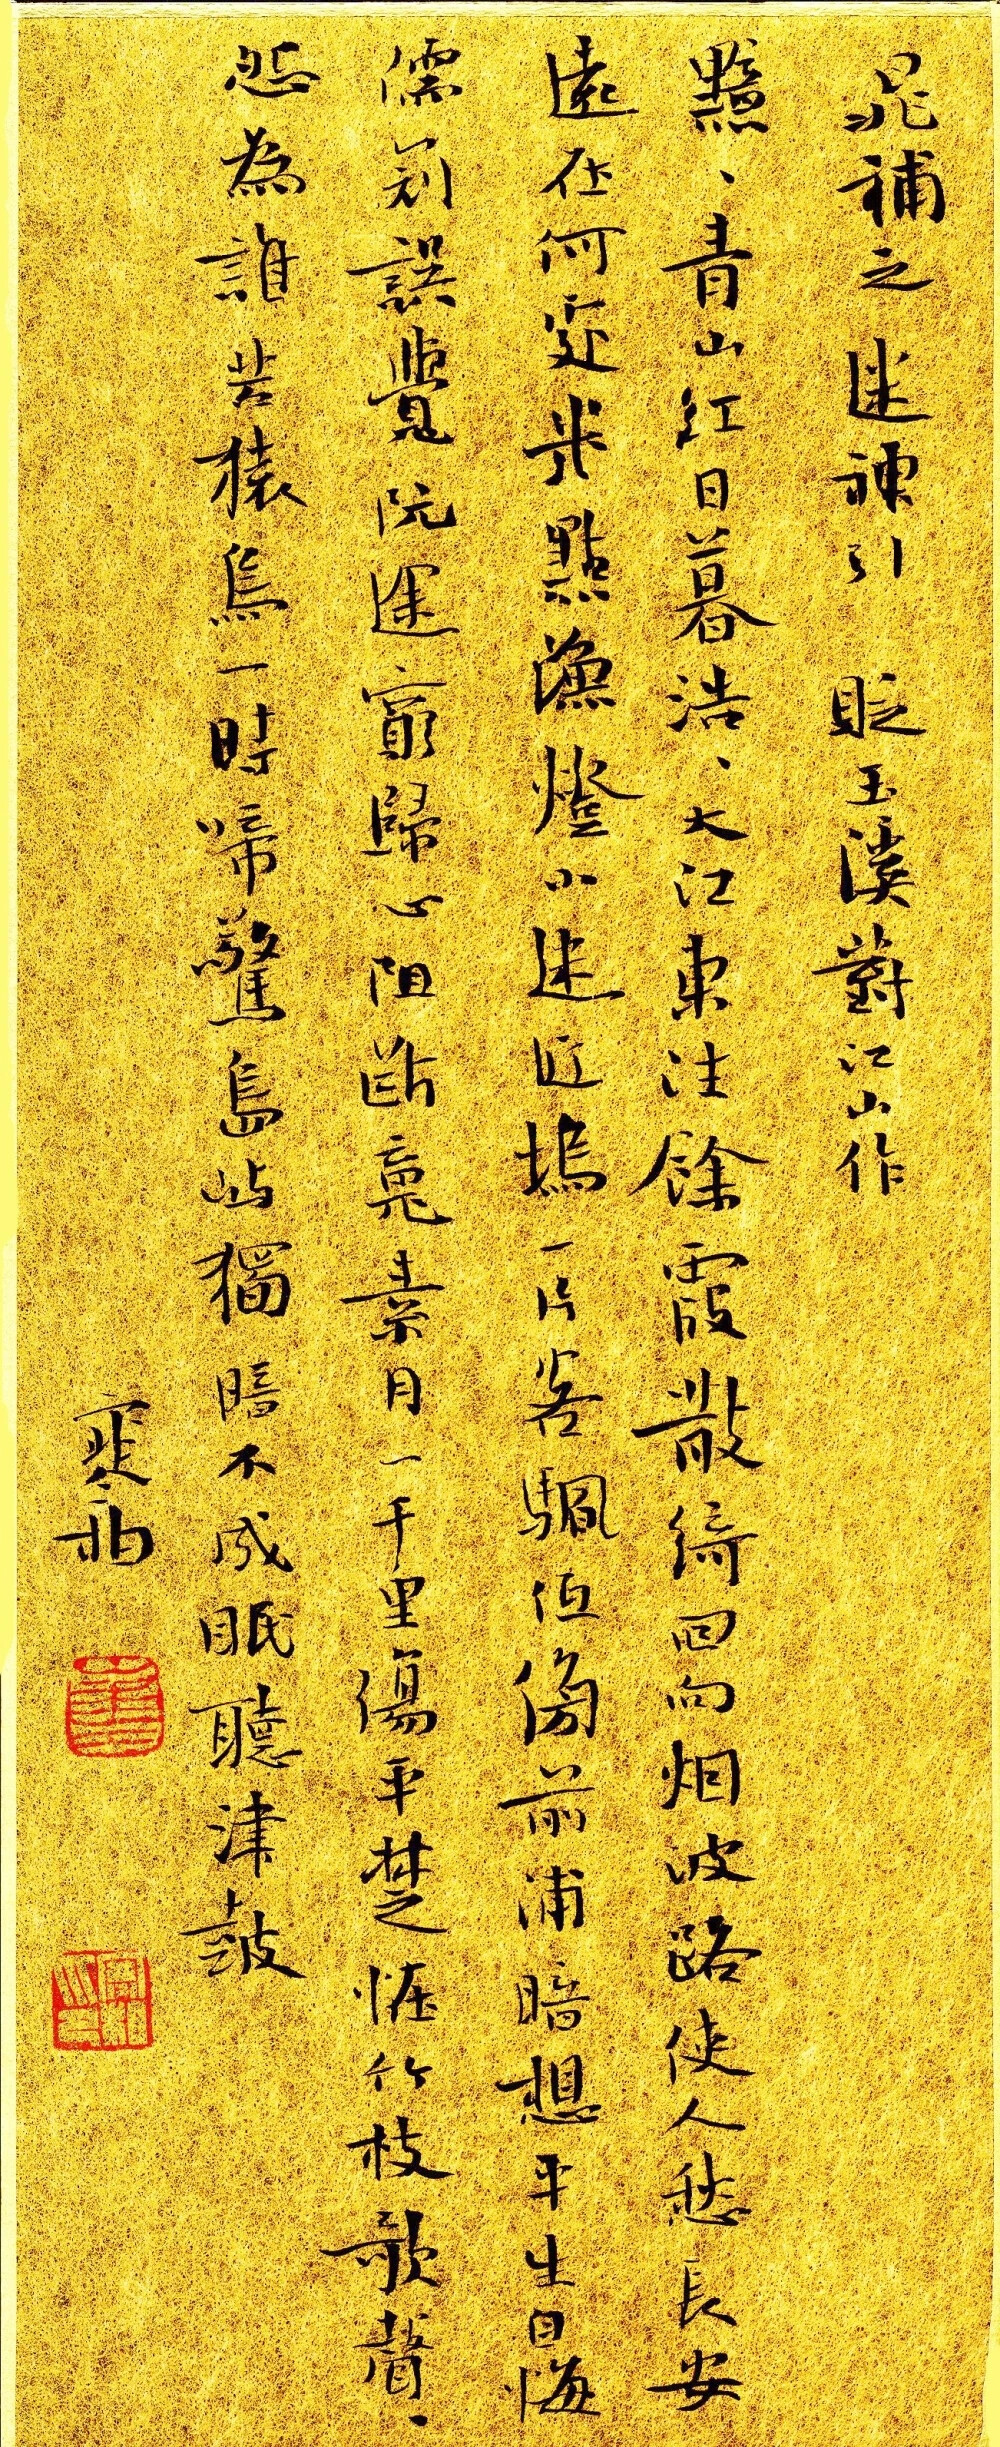 晁補之迷神引 貶玉溪對江山作
黯、青山紅日暮浩、大江東注餘霞散綺回向烟波路使人愁長安
遠在何處幾點漁燈小迷近塢一片客颿低傍前浦暗想平生自悔
儒冠誤覺阮途窮歸心阻斷魂素月一千里傷平楚怪竹枝歌聲、
怨為誰苦猿鳥一時啼驚島嶼獨暗不成眠聽津鼓